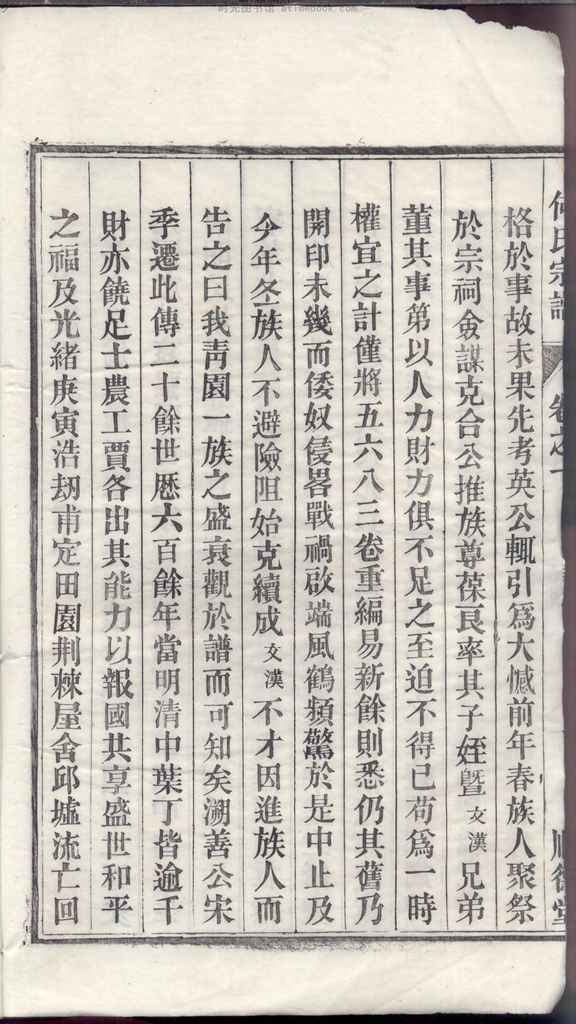 时光图书馆 atimebook.com
何氏宗譜 卷之一 順德堂
格於事故未果先考英公輒引爲大憾前年春族人聚祭
於宗祠僉謀克合公推族尊葆艮率其子姪曁文漢兄弟
董其事第以人力財力俱不足之至迫不得已苟爲一時
權宜之計僅將五六八三卷重編易新餘則悉仍其舊乃
開印未幾而倭奴侵畧戰禍啟端風鶴頻驚於是中止及
今年冬族人不避險阻始克續成文漢不才因進族人而
告之曰我靑園一族之盛衰觀於譜而可知矣溯善公宋
季遷此傳二十餘世歷六百餘年當明清中葉丁皆逾千
財亦饒足士農工賈各出其能力以報國共享盛世和平
之福及光緒庚寅浩刼甫定田園荆棘屋舍邱墟流亡回